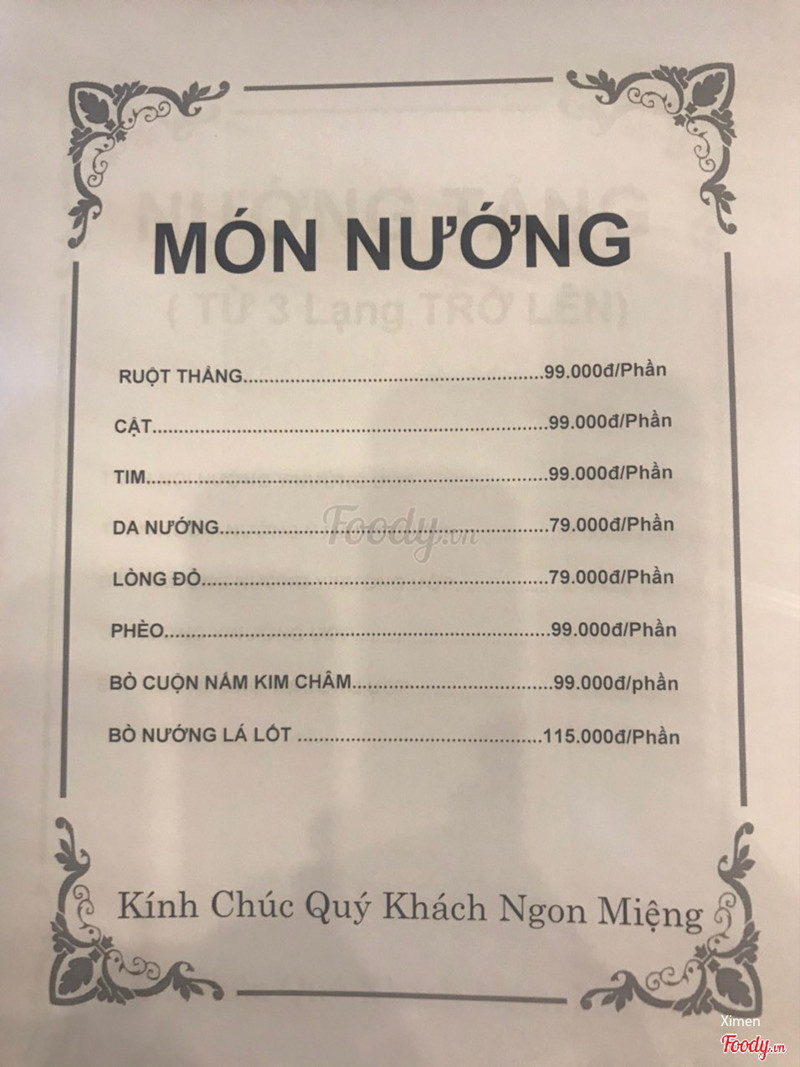 NƯỚNG TẢNG
MÓN NƯỚNG
( TỪ 3 Lạng TRỞ LÊN)
RUỘT THẲNG..................................................99.000đ/Phần
CẬT..................................................................99.000đ/Phần
TIM...................................................................99.000đ/Phần
DA NƯỚNG.......................................................79.000đ/Phần
LÒNG ĐỎ..........................................................79.000đ/Phần
PHÈO................................................................99.000đ/Phần
BÒ CUỘN NẤM KIM CHÂM.................................99.000đ/phần
BÒ NƯỚNG LÁ LỐT ........................................115.000đ/Phần
Foody.vn
Kính Chúc Quý Khách Ngon Miệng
Ximen
Foody.vn